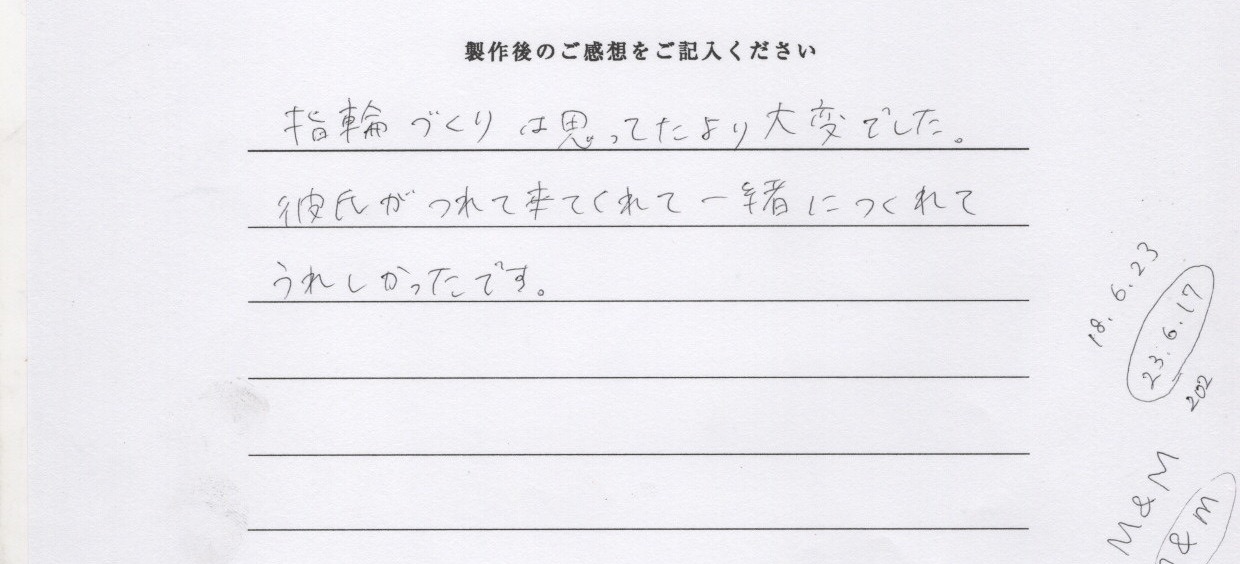 製作後のご感想をご記入ください
指輪づくりは思ってたより大変でした。
彼氏がつれて来てくれて一緒につくれて
うれしかったです。
18.6.23
23.6.17
202
M&M
&M